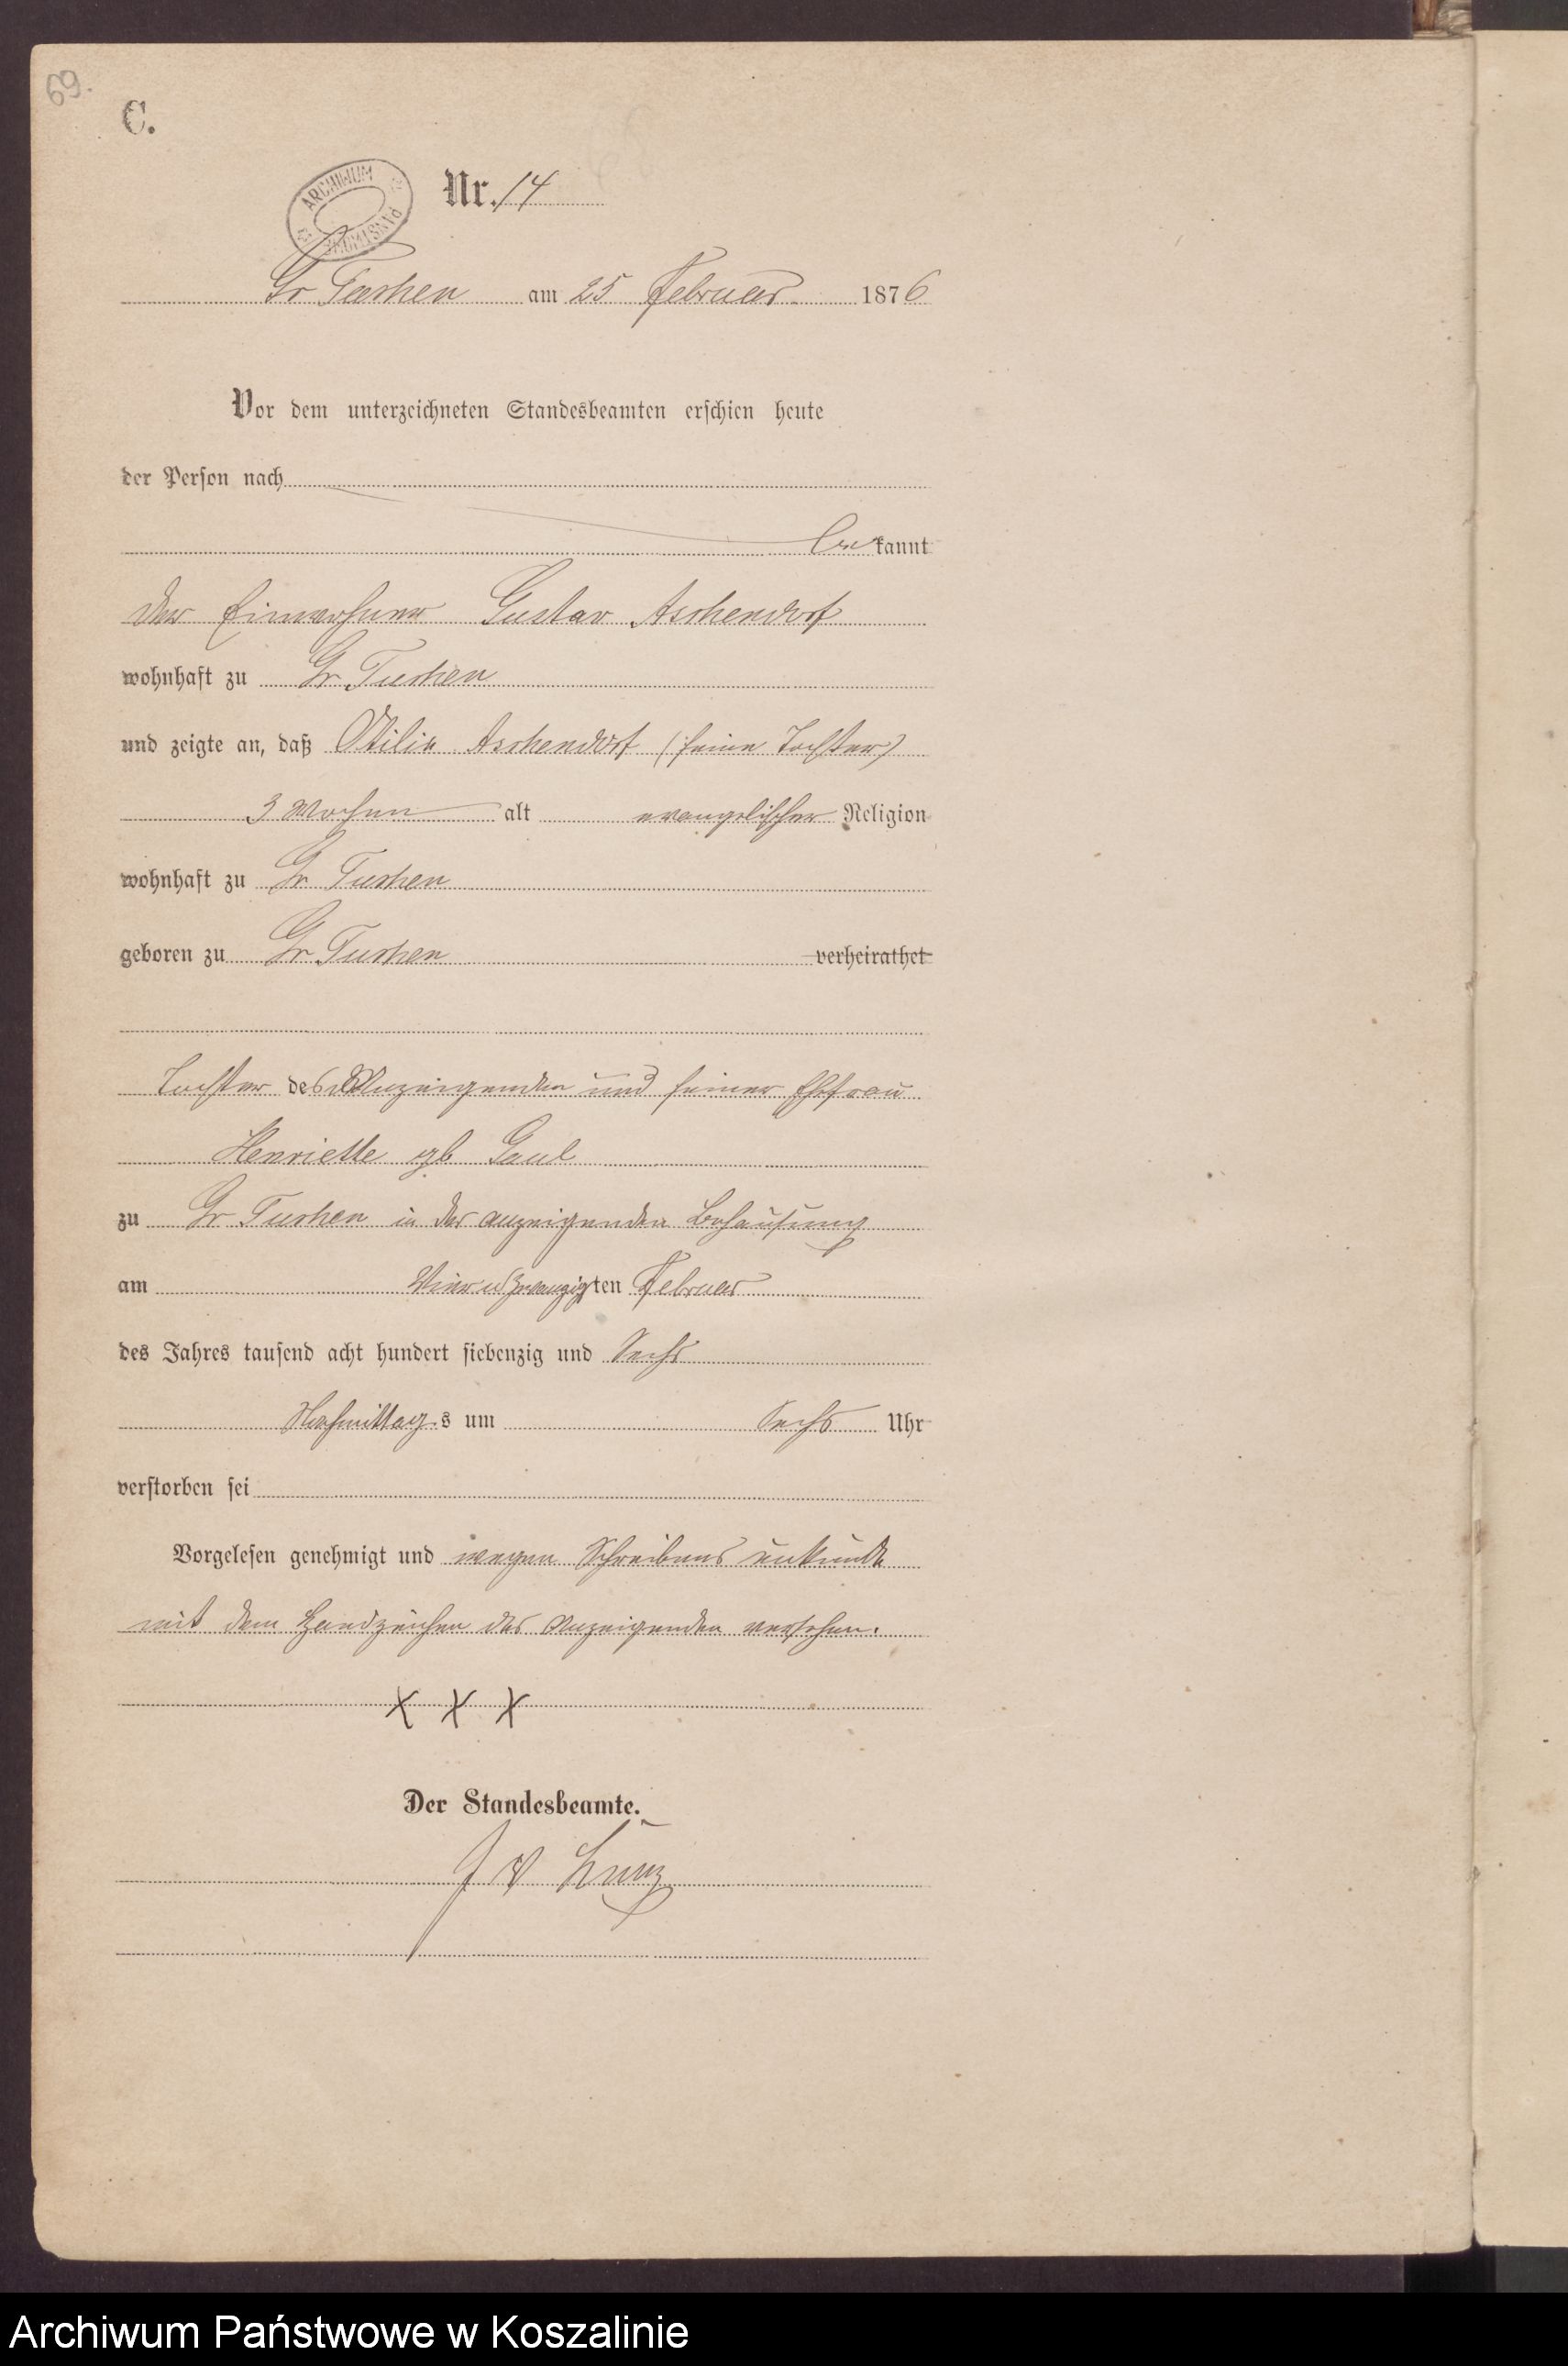 69.
C.
ARCHIWUM PAŃSTWOWE
Nr. 14
Gr Tuchen am 25 Februar 1876
Vor dem unterzeichneten Standesbeamten erschien heute
der Person nach
bekannt
der Einwohner Gustav Aschendorf
wohnhaft zu Gr Tuchen
und zeigte an, daß Otilie Aschendorf (seine Tochter)
3 Wochen alt evangelischer Religion
wohnhaft zu Gr Tuchen
geboren zu Gr Tuchen verheirathet
Tochter des Anzeigenden und seiner Ehefrau
Henriette gb Gaul
zu Gr Tuchen in des anzeigenden Behausung
am Vier u zwanzigten Februar
des Jahres tausend acht hundert siebenzig und Sechs
Nachmittags um Sechs Uhr
verstorben sei
Vorgelesen genehmigt und wegen Schreibens unkunde
mit dem Handzeichen des Anzeigenden versehen.
X X X
Der Standesbeamte.
J V
Archiwum Państwowe w Koszalinie